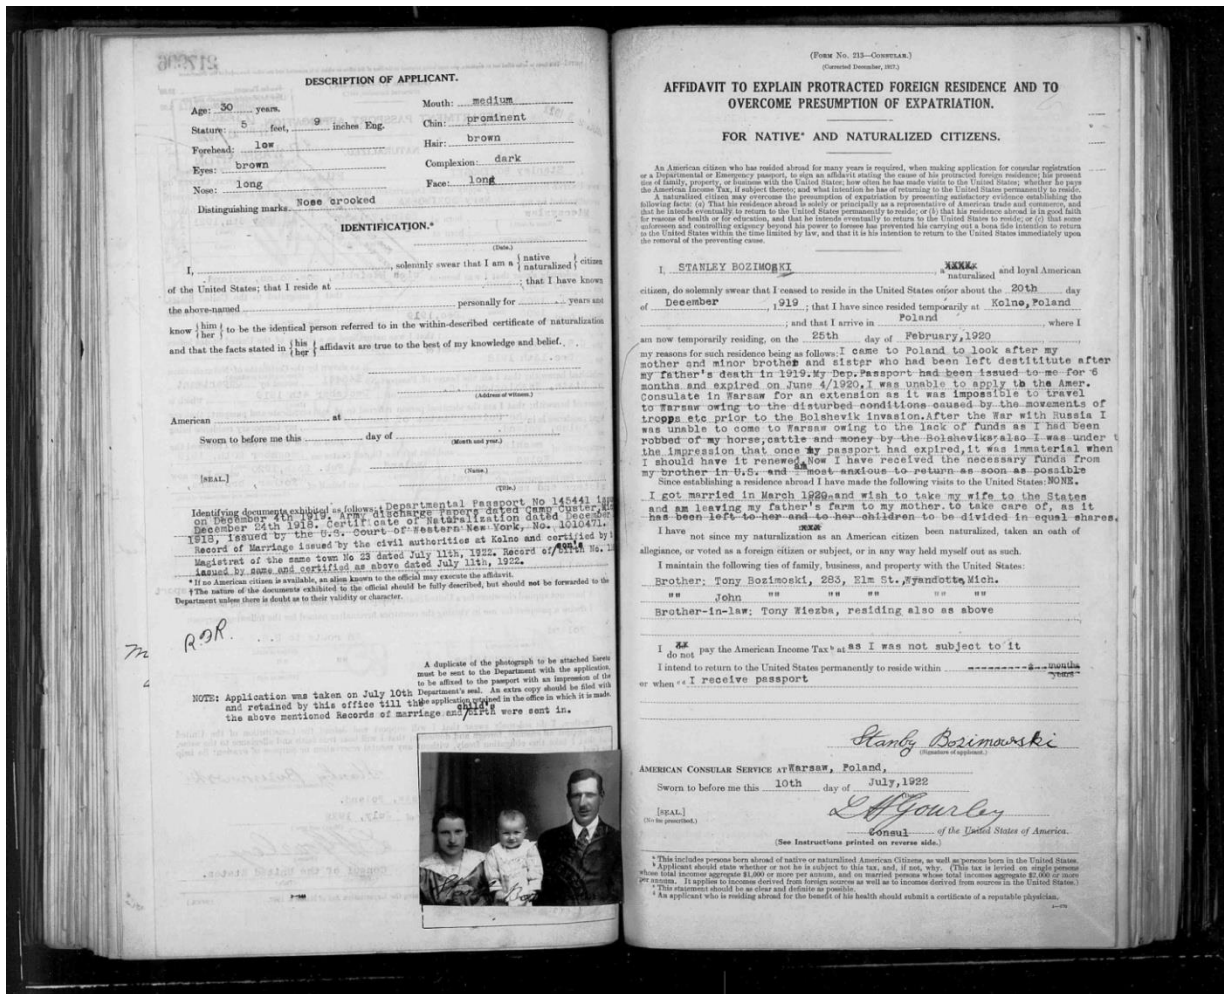 DESCRIPTION OF APPLICANT.
Age: 30 years.
Mouth: medium
Stature: 5 feet, 9 inches Eng.
Chin: prominent
Forehead: low
Hair: brown
Eyes: brown
Complexion: dark
Nose: long
Face: long
Distinguishing marks Nose crooked
IDENTIFICATION.*
(Date.)
I, , solemnly swear that I am a { native naturalized } citizen
of the United States; that I reside at ; that I have known
the above-named personally for years and
know { him her } to be the identical person referred to in the within-described certificate of naturalization
and that the facts stated in { his her } affidavit are true to the best of my knowledge and belief.
(Address of witness.)
American at
Sworn to before me this day of
(Month and year.)
(Name.)
[SEAL.]
(Title.)
Identifying documents exhibited as follows: Departmental Passport No 145441
on December 4th 1919. Army discharge Papers dated Camp Custer,
December 24th 1918. Certificate of Naturalization dated December
1918, issued by the U.S. Court of Western New York, No. 1010471.
Record of Marriage issued by the civil authorities at Kolno and certified by
Magistrat of the same town No 23 dated July 11th, 1922. Record of son's birth No.
issued by same and certified as above dated July 11th, 1922.
* If no American citizen is available, an alien known to the official may execute the affidavit.
† The nature of the documents exhibited to the official should be fully described, but should not be forwarded to the
Department unless there is doubt as to their validity or character.
A duplicate of the photograph to be attached hereto
must be sent to the Department with the application,
to be affixed to the passport with an impression of the
Department's seal. An extra copy should be filed with
the application retained in the office in which it is made.
NOTE: Application was taken on July 10th
and retained by this office till the child's
the above mentioned Records of marriage and/birth were sent in.
(FORM NO. 213—CONSULAR.)
(Corrected December, 1917.)
AFFIDAVIT TO EXPLAIN PROTRACTED FOREIGN RESIDENCE AND TO
OVERCOME PRESUMPTION OF EXPATRIATION.
FOR NATIVE* AND NATURALIZED CITIZENS.
An American citizen who has resided abroad for many years is required, when making application for consular registration
or a Departmental or Emergency passport, to sign an affidavit stating the cause of his protracted foreign residence; his present
ties of family, property, or business with the United States; how often he has made visits to the United States; whether he pays
the American Income Tax, if subject thereto; and what intention he has of returning to the United States permanently to reside.
A naturalized citizen may overcome the presumption of expatriation by presenting satisfactory evidence establishing the
following facts: (a) That his residence abroad is solely or principally as a representative of American trade and commerce, and
that he intends eventually to return to the United States permanently to reside; or (b) that his residence abroad is in good faith
for reasons of health or for education, and that he intends eventually to return to the United States to reside; or (c) that some
unforeseen and controlling exigency beyond his power to foresee has prevented his carrying out a bona fide intention to return
to the United States within the time limited by law, and that it is his intention to return to the United States immediately upon
the removal of the preventing cause.
I, STANLEY BOZIMOSKI , a naturalized and loyal American
citizen, do solemnly swear that I ceased to reside in the United States on or about the 20th day
of December , 1919 ; that I have since resided temporarily at Kolno, Poland
; and that I arrive in Poland , where I
am now temporarily residing, on the 25th day of February, 1920
my reasons for such residence being as follows: I came to Poland to look after my
mother and minor brother and sister who had been left destititute after
my father's death in 1919. My Dep. Passport had been issued to me for 6
months and expired on June 4/1920. I was unable to apply to the Amer.
Consulate in Warsaw for an extension as it was impossible to travel
to Warsaw owing to the disturbed conditions caused by the movements of
troops etc prior to the Bolshevik invasion. After the War with Russia I
was unable to come to Warsaw owing to the lack of funds as I had been
robbed of my horse, cattle and money by the Bolsheviks; also I was under t
the impression that once my passport had expired, it was immaterial when
I should have it renewed. Now I have received the necessary funds from
my brother in U.S. and am most anxious to return as soon as possible
Since establishing a residence abroad I have made the following visits to the United States: NONE.
I got married in March 1920 and wish to take my wife to the States
and am leaving my father's farm to my mother. to take care of, as it
has been left to her and to her children to be divided in equal shares.
I have not since my naturalization as an American citizen been naturalized, taken an oath of
allegiance, or voted as a foreign citizen or subject, or in any way held myself out as such.
I maintain the following ties of family, business, and property with the United States:
Brother: Tony Bozimoski, 283, Elm St., Wyandotte, Mich.
"" John "" "" "" "" ""
Brother-in-law: Tony Wiezba, residing also as above
I do not pay the American Income Tax b at as I was not subject to it
I intend to return to the United States permanently to reside within months years
or when I receive passport
Stanley Bozimowski
(Signature of applicant.)
AMERICAN CONSULAR SERVICE AT Warsaw, Poland,
Sworn to before me this 10th day of July, 1922
[SEAL.]
(No fee prescribed.)
L H Gourley
Consul of the United States of America.
(See Instructions printed on reverse side.)
a This includes persons born abroad of native or naturalized American Citizens, as well as persons born in the United States.
b Applicant should state whether or not he is subject to this tax, and, if not, why. (This tax is levied on single persons
whose total incomes aggregate $1,000 or more per annum, and on married persons whose total incomes aggregate $2,000 or more
per annum. It applies to incomes derived from foreign sources as well as to incomes derived from sources in the United States.)
c This statement should be as clear and definite as possible.
d An applicant who is residing abroad for the benefit of his health should submit a certificate of a reputable physician.